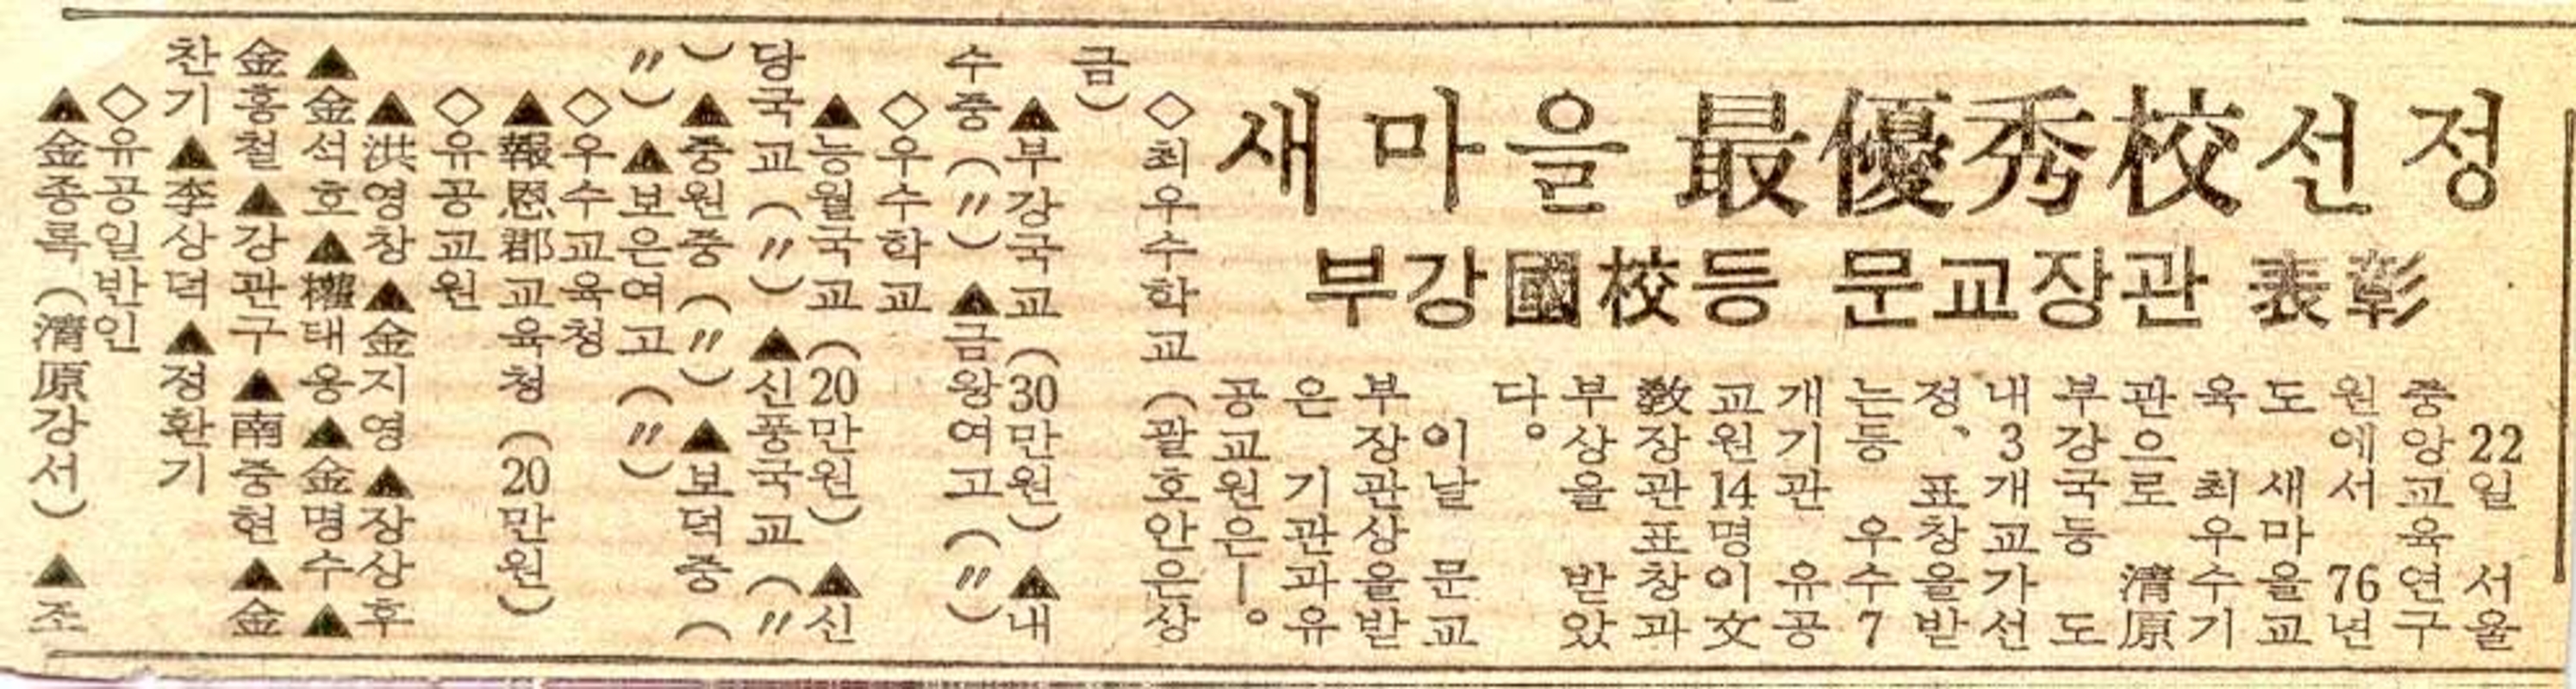 새마을 最優秀校선정
부강國校등 문교장관 表彰
22일 서울
중앙교육연구
원에서 76년
도 새마을교
육 최우수기
관으로 淸原
부강국등 도
내 3개교가 선
정、표창을 받
는등 우수 7
개기관 유공
교원 14명이 文
敎장관 표창과
부상을 받았
다。
이날 문교
부장관상을 받
은 기관과 유
공교원은ー。
◇최우수학교(괄호안은 상
금)
▲부강국교(30만원) ▲내
수중(〃) ▲금왕여고(〃)
◇우수학교
▲능월국교(20만원) ▲신
당국교(〃) ▲신풍국교(〃
) ▲중원중(〃) ▲보덕중(
〃) ▲보은여고(〃)
◇우수교육청
▲報恩郡교육청(20만원)
◇유공교원
▲洪영창▲金지영▲장상후
▲金석호▲權태웅▲金명수▲
金흥철▲강관구▲南중현▲金
찬기▲李상덕▲정환기
◇유공일반인
▲金종록(淸原강서)▲조